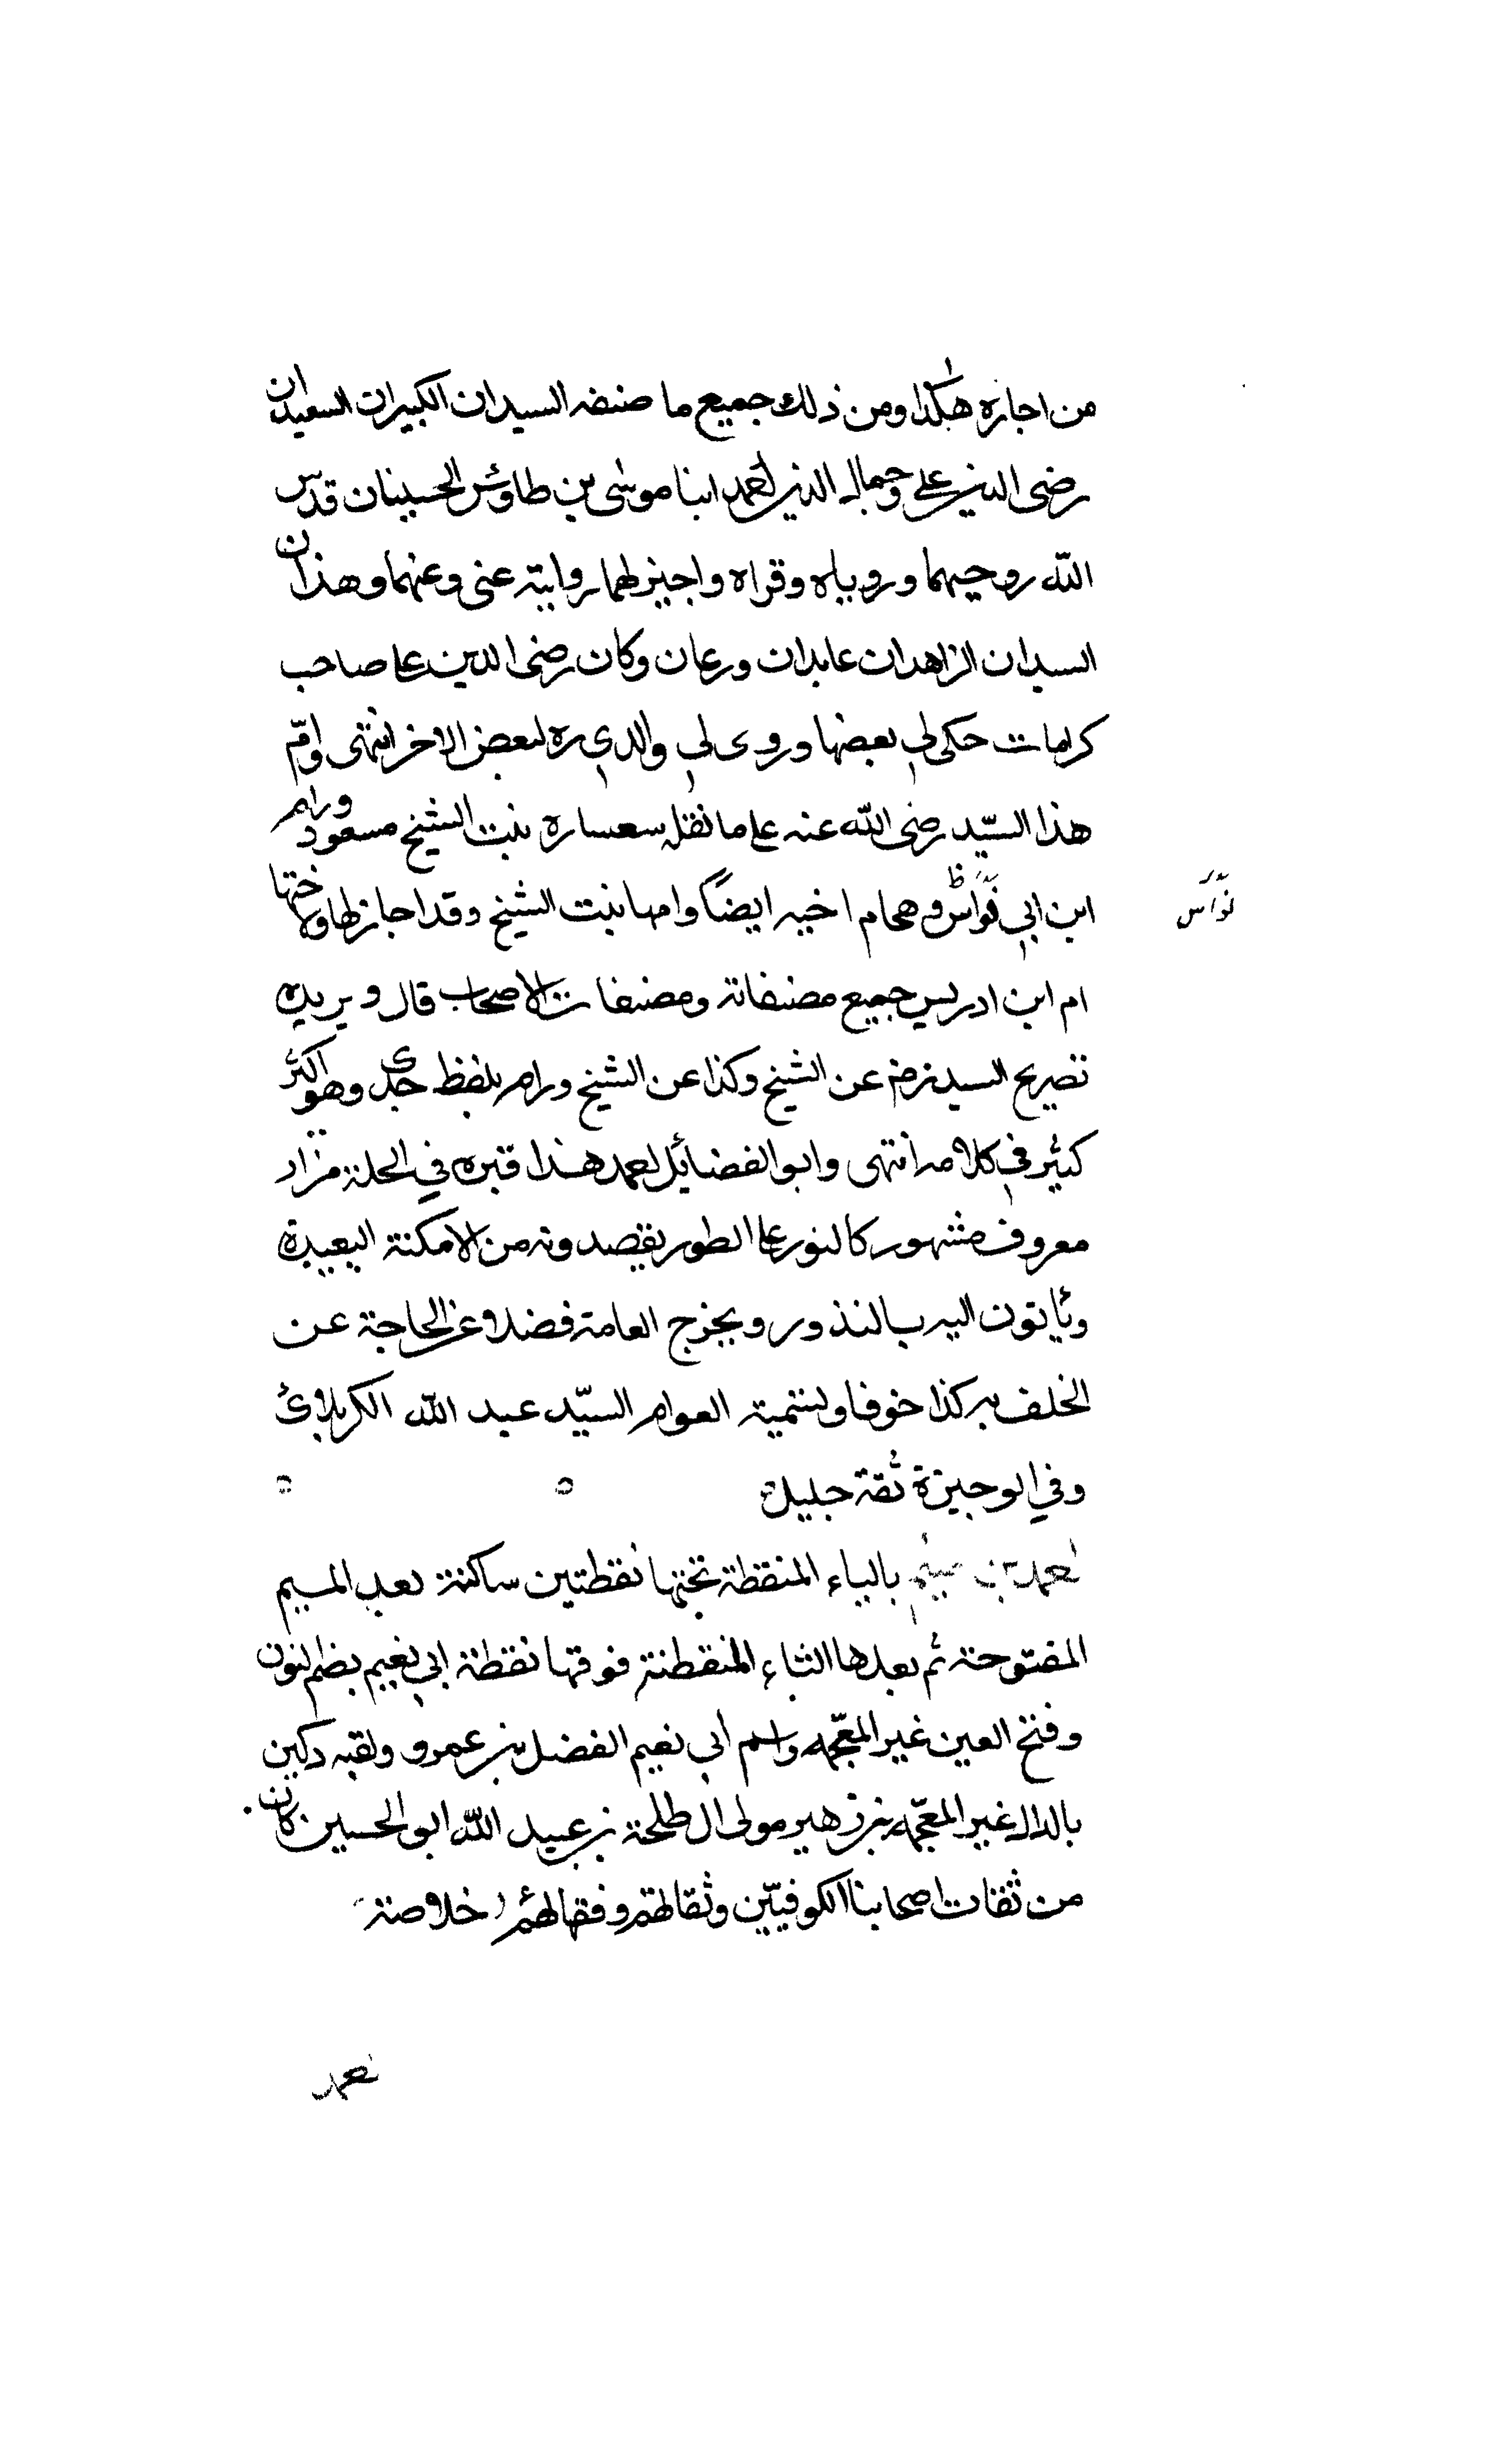 من اجازه هكذا ومن ذلك جميع ما صنفه السيدان الكبيران السعيدان
رضى الدين على وجمال الدين احمد ابنا موسى بن طاوس الحسينيان قدس
الله روحيهما ورويا‌ه وقراه واجيز لهما روايته عنى وعنهما وهذان
السيدان الزاهدان عابدان ورعان وكان رضى الدين على صاحب
كرامات حكى لى بعضها وروى لى والدى ره لبعض الاخر انتهى وام
هذا السيّد رضى الله عنه على ما نقله بنت الشيخ مسعود ورام
نوّاس
ابن ابى نوّاس و اخيه ايضاً وامها بنت الشيخ وقد اجاز لها ولاختها
ام ابن ادريس جميع مصنفاته ومصنفات الاصحاب قال ويريده
تصريح السيد رض عن الشيخ وكذا عن الشيخ ورام بلفظ جدى وهو اكثر
كثير فى كلامه انتهى وابو الفضائل احمد هذا قبره فى الحلة مزار
معروف مشهور كالنور على الطور يقصدونه من الامكنة البعيدة
وياتون اليه بالنذور ويحرج العامة فضلا عن الخاجة عن
الخلف به كذا خوفا ولتسمية العوام السيّد عبد الله الكربلائ
وفى الوجيزة ثقة جليل
احمد بن ميثم بالياء المنقطة تحتها نقطتين ساكنة بعد الميم
المفتوحة ثم بعدها الثاء المنقطة فوقها نقطة ابى نعيم بضم النون
وفتح العين غير المعجمه واسم ابى نعيم الفضل بن عمرو ولقبه دكين
بالدال غير المعجمه بن زهير مولى ال طلحة بن عبيد الله ابو الحسين كان
من ثقات اصحابنا الكوفيّين وثقاتهم وفقهائهم خلاصة
احمد